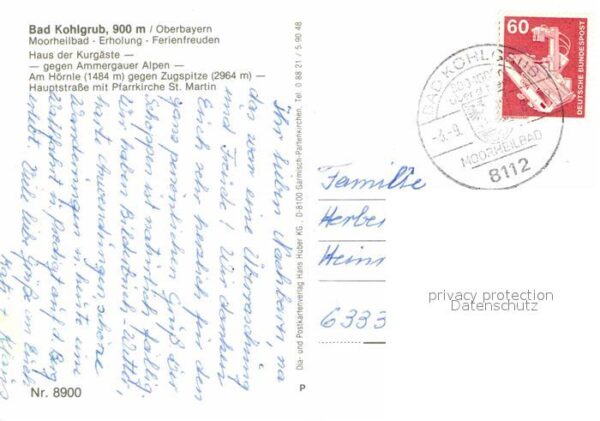 Bad Kohlgrub, 900 m / Oberbayern
Moorheilbad - Erholung - Ferienfreuden
Haus der Kurgäste —
— gegen Ammergauer Alpen —
Am Hörnle (1484 m) gegen Zugspitze (2964 m) —
Hauptstraße mit Pfarrkirche St. Martin
Ihr lieben Nachbarn, na
das war eine Überraschung
und Freude! Wir danken
Euch sehr herzlich für den
ganz persönlichen Gruß. Der
Schoppen ist natürlich fällig.
Wir haben Bilderbuch-Wetter,
harte Anwendungen, schöne
Wanderungen u. heute eine
Wallfahrt m. Predigt auf d. Berg
Viele liebe Grüße
Nr. 8900
Dia- und Postkartenverlag Hans Huber KG. D-8100 Garmisch-Partenkirchen, Tel. 0 88 21 / 5 90 48
P
60
DEUTSCHE BUNDESPOST
BAD KOHLGRUB
-3.-9.
MOORHEILBAD
8112
Familie
6333
privacy protection
Datenschutz